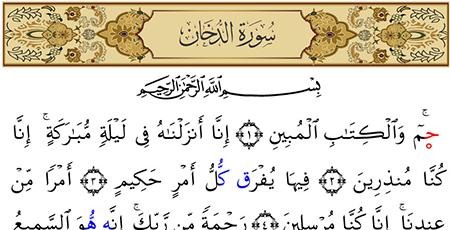 سُورَةُ الدُّخَانِ
بِسْمِ اللَّهِ الرَّحْمَٰنِ الرَّحِيمِ
حمٓ ۚ وَالْكِتَابِ الْمُبِينِ ﴿١﴾ إِنَّا أَنزَلْنَاهُ فِي لَيْلَةٍ مُّبَارَكَةٍ ۚ إِنَّا
كُنَّا مُنذِرِينَ ﴿٢﴾ فِيهَا يُفْرَقُ كُلُّ أَمْرٍ حَكِيمٍ ﴿٣﴾ أَمْرًا مِّنْ
عِندِنَا ۚ إِنَّا كُنَّا مُرْسِلِينَ ﴿٤﴾ رَحْمَةً مِّن رَّبِّكَ ۚ إِنَّهُ هُوَ السَّمِيعُ